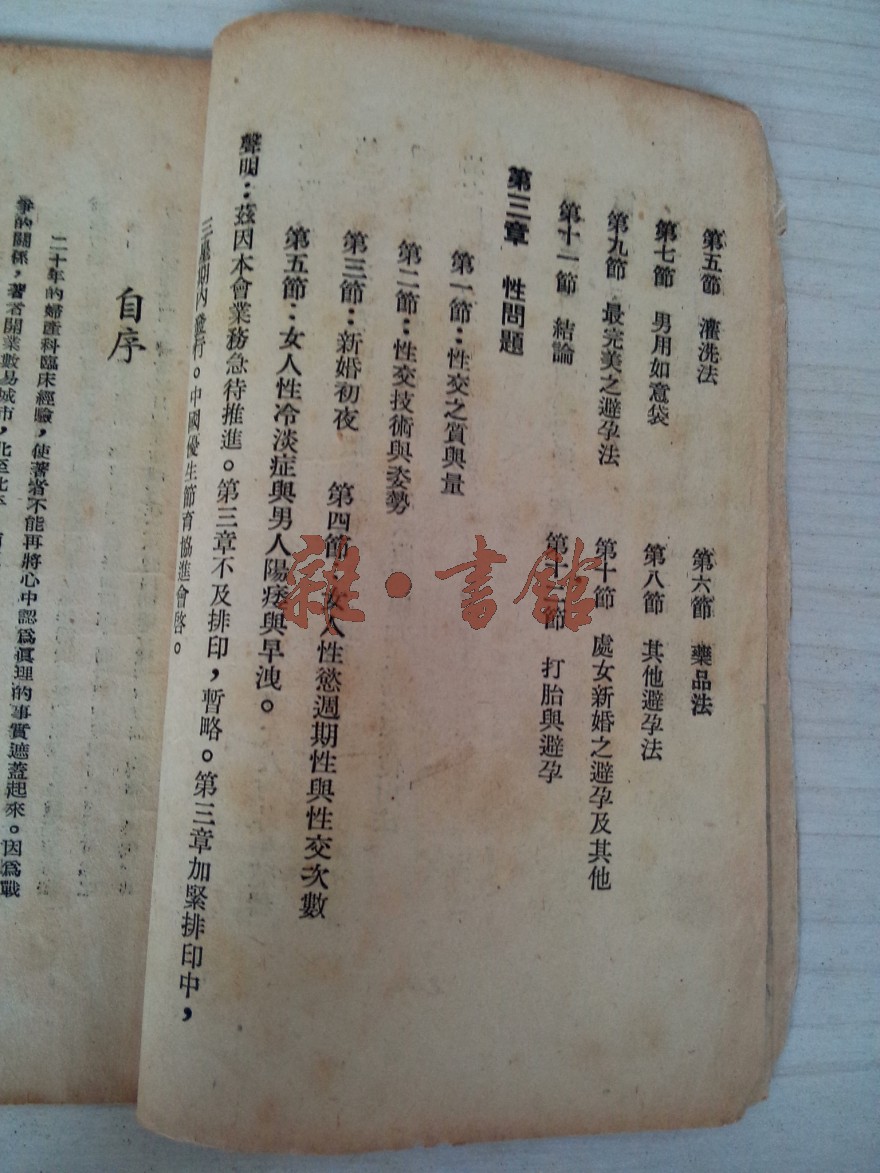 第五節 灌洗法
第六節 藥品法
第七節 男用如意袋
第八節 其他避孕法
第九節 最完美之避孕法
第十節 處女新婚之避孕及其他
第十一節 打胎與避孕
第十二節 結論
第三章 性問題
第一節：性交之質與量
第二節：性交技術與姿勢
第三節：新婚初夜
第四節：女人性慾週期性與性交次數
第五節：女人性冷淡症與男人陽痿與早洩。
聲明：茲因本會業務急待推進。第三章不及排印，暫略。第三章加緊排印中，
三星期內發行。中國優生節育協進會啓。
自序
二十年的婦產科臨床經驗，使著者不能再將心中認爲眞理的事實遮蓋起來。因爲戰
爭的關係，著者開業數易城市，北至北
雜·書館